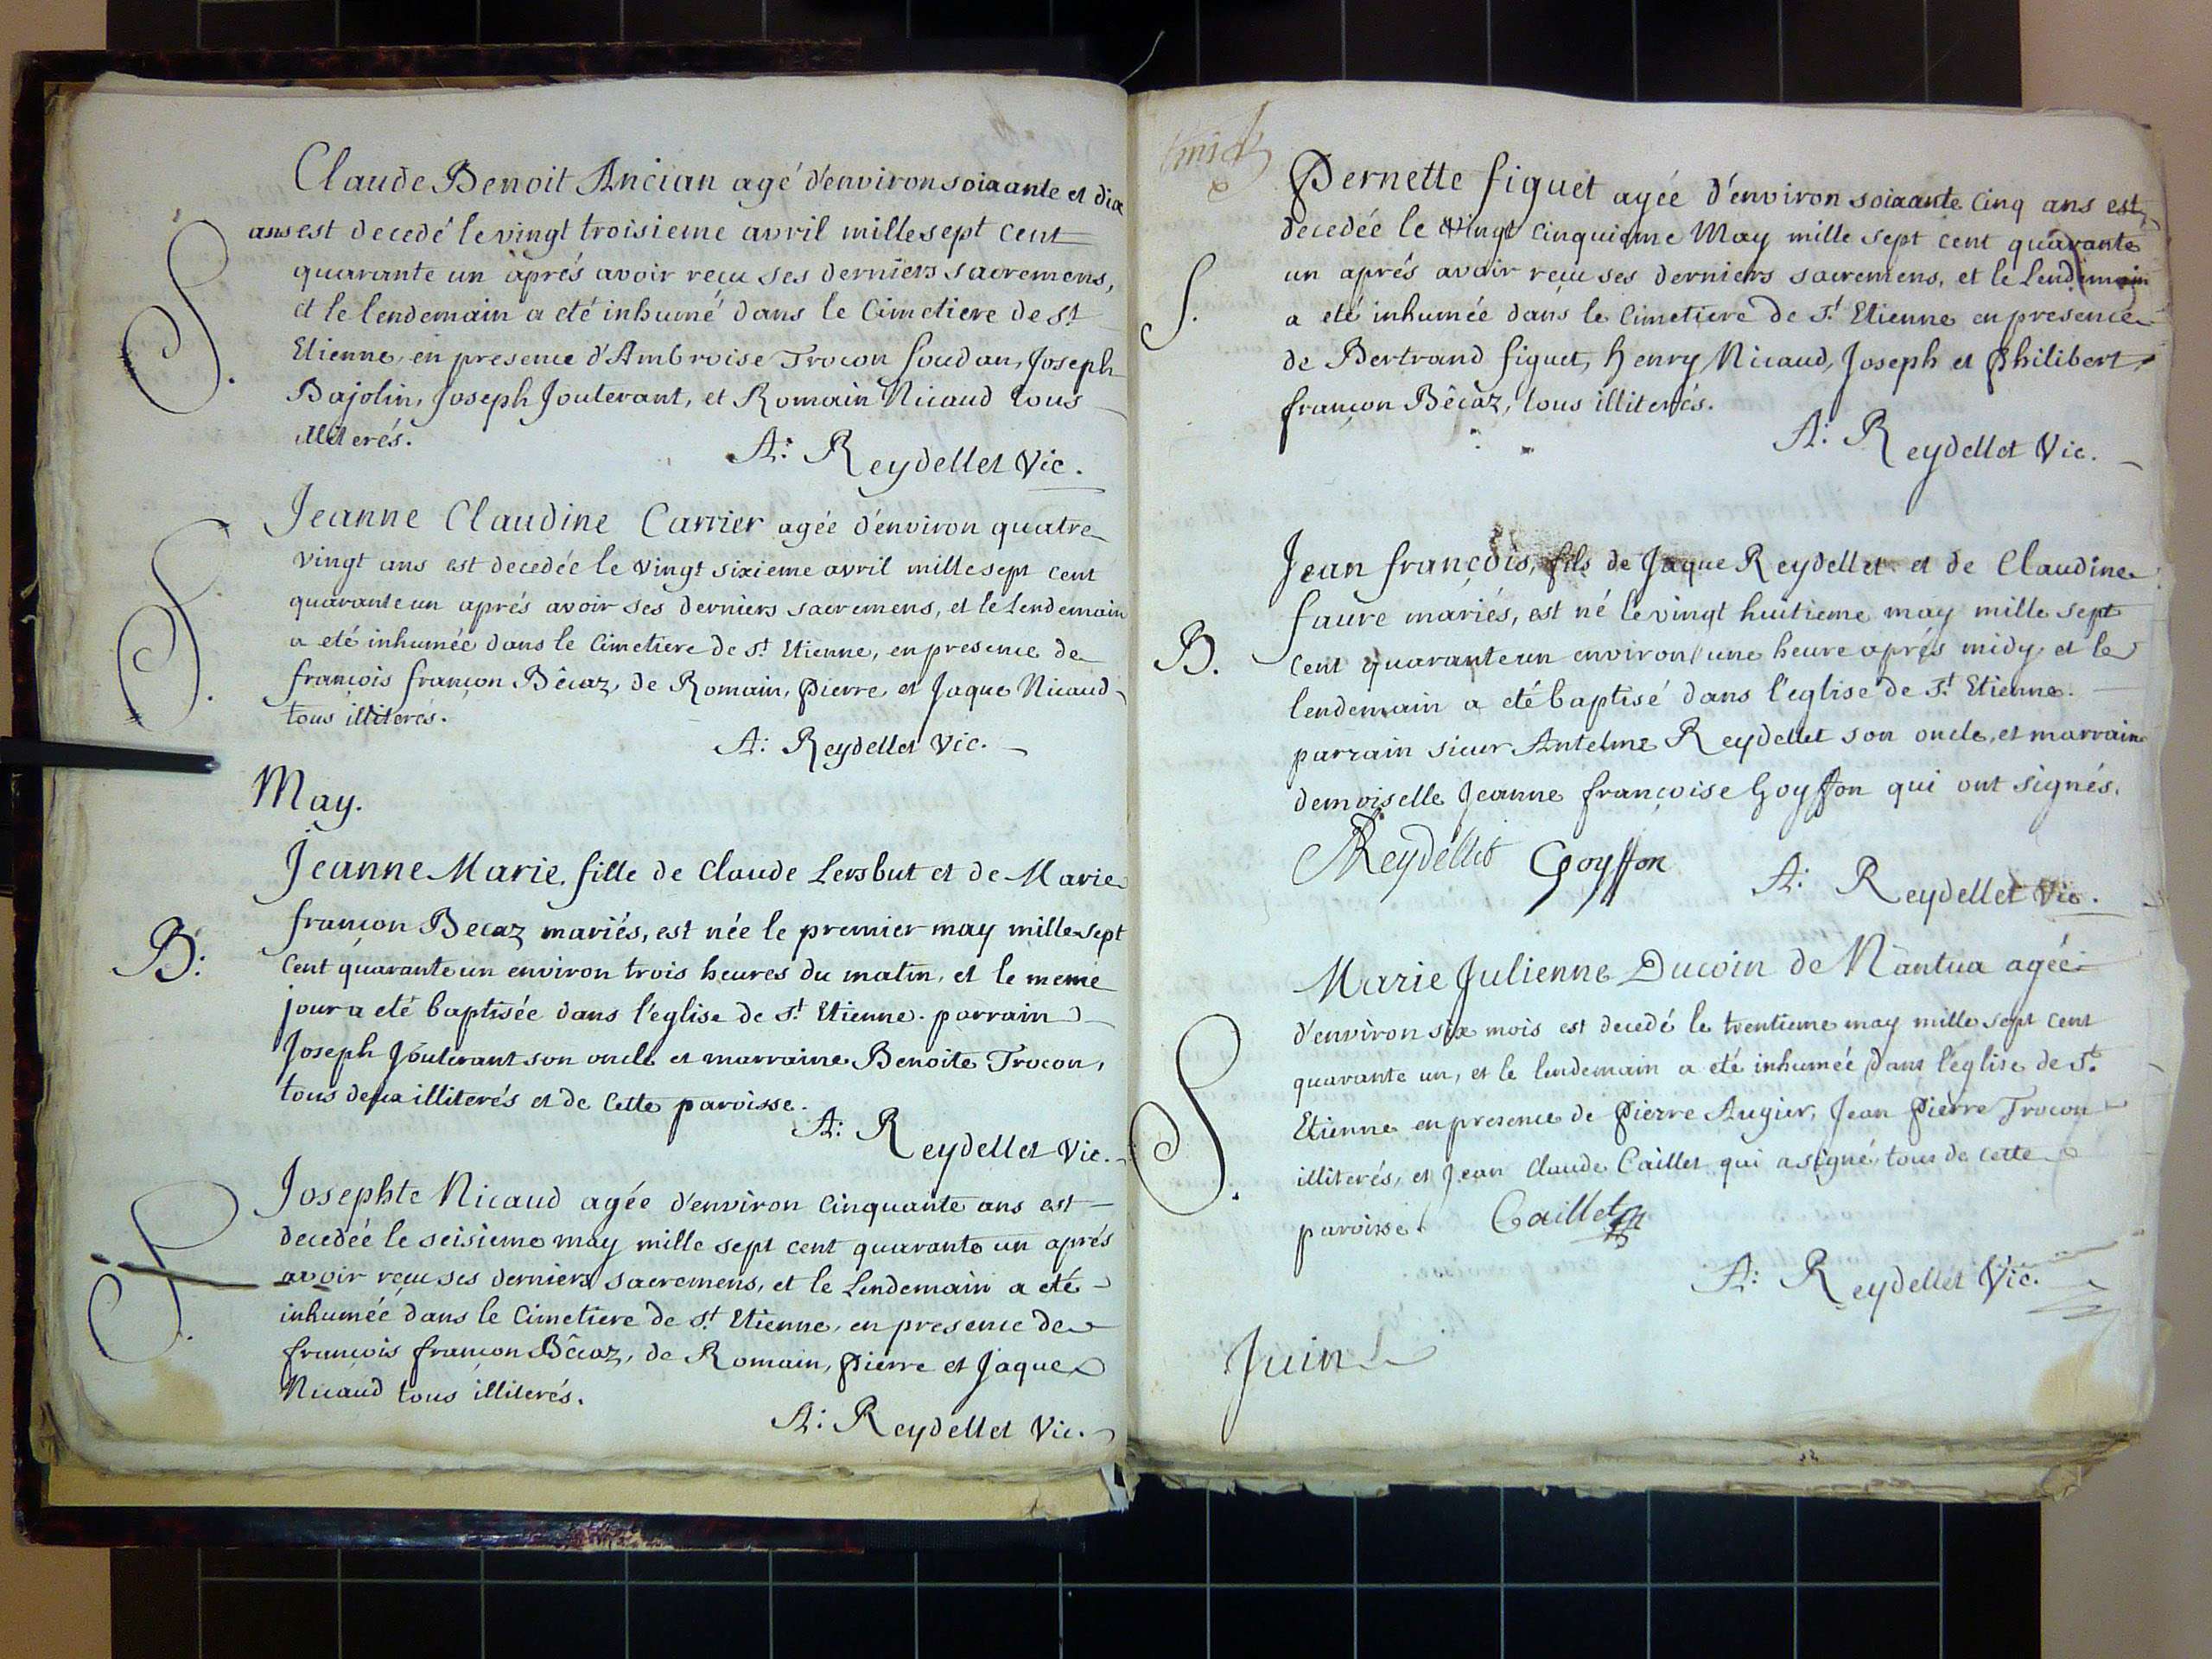 Claude Benoit Ancian agé d'environ soixante et dix
ans est decedé le vingt troisieme avril mille sept cent
quarante un aprés avoir reçu ses derniers sacremens,
et le lendemain a eté inhumé dans le Cimetiere de st
S.
Etienne, en presence d'Ambroise Trocon Soudan, Joseph
Bajolin, Joseph Jouterant, et Romain Nicaud tous
illiterés.
A: Reydellet Vic.
Jeanne Claudine Carrier agée d'environ quatre
vingt ans est decedée le vingt sixieme avril mille sept cent
quarante un aprés avoir ses derniers sacremens, et le lendemain
a eté inhumée dans le Cimetiere de st Etienne, en presence de
S.
françois françon Bêcaz, de Romain, Pierre et Jaque Nicaud
tous illiterés.
A: Reydellet Vic.
May.
Jeanne Marie, fille de Claude Lersbut et de Marie
françon Becaz mariés, est née le premier may mille sept
B:
cent quarante un environ trois heures du matin, et le meme
jour a eté baptisée dans l'eglise de st Etienne. parrain
Joseph Jouterant son oncle et marraine Benoite Trocon,
tous deux illiterés et de cette paroisse.
A: Reydellet Vic.
Josephte Nicaud agée d'environ cinquante ans est
decedée le seisieme may mille sept cent quarante un aprés
avoir reçu ses derniers sacremens, et le lendemain a eté
inhumée dans le Cimetiere de st Etienne, en presence de
S.
françois françon Bêcaz, de Romain, Pierre et Jaque
Nicaud tous illiterés.
A: Reydellet Vic.
Pernette figuet agée d'environ soixante cinq ans est
decedée le vingt cinquieme May mille sept cent quarante
un aprés avoir reçu ses derniers sacremens, et le lendemain
S.
a eté inhumée dans le Cimetiere de st Etienne en presence
de Bertrand figuet, henry Nicaud, Joseph et Philibert
françon Bêcaz, tous illiterés.
A: Reydellet Vic.
Jean françois, fils de Jaque Reydellet et de Claudine
faure mariés, est né le vingt huitieme may mille sept
B.
cent quarante un environ une heure aprés midy et le
lendemain a eté baptisé dans l'eglise de st Etienne.
parrain sieur Antelme Reydellet son oncle, et marraine
demoiselle Jeanne françoise Goyffon qui ont signés.
Reydellet Goyffon
A: Reydellet Vic.
Marie Julienne Ducoin de Nantua agée
d'environ six mois est decedé le trentieme may mille sept cent
quarante un, et le lendemain a eté inhumée dans l'eglise de st
S.
Etienne en presence de Pierre Augier, Jean Pierre Trocon
illiterés, et Jean Claude Caillet qui a signé tous de cette
paroisse. Caillet
A: Reydellet Vic.
Juin